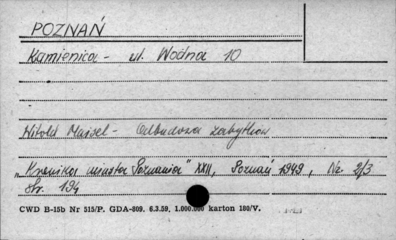 POZNAŃ
Kamienica - ul. Wodna 10
Witold Maisel - Odbudowa zabytków
"Kronika miasta Poznania" XXII, Poznań 1949, Nr. 2/3
str. 194
CWD B-15b Nr 515/P. GDA-809. 6.3.59, 1.000.000 karton 180/V.